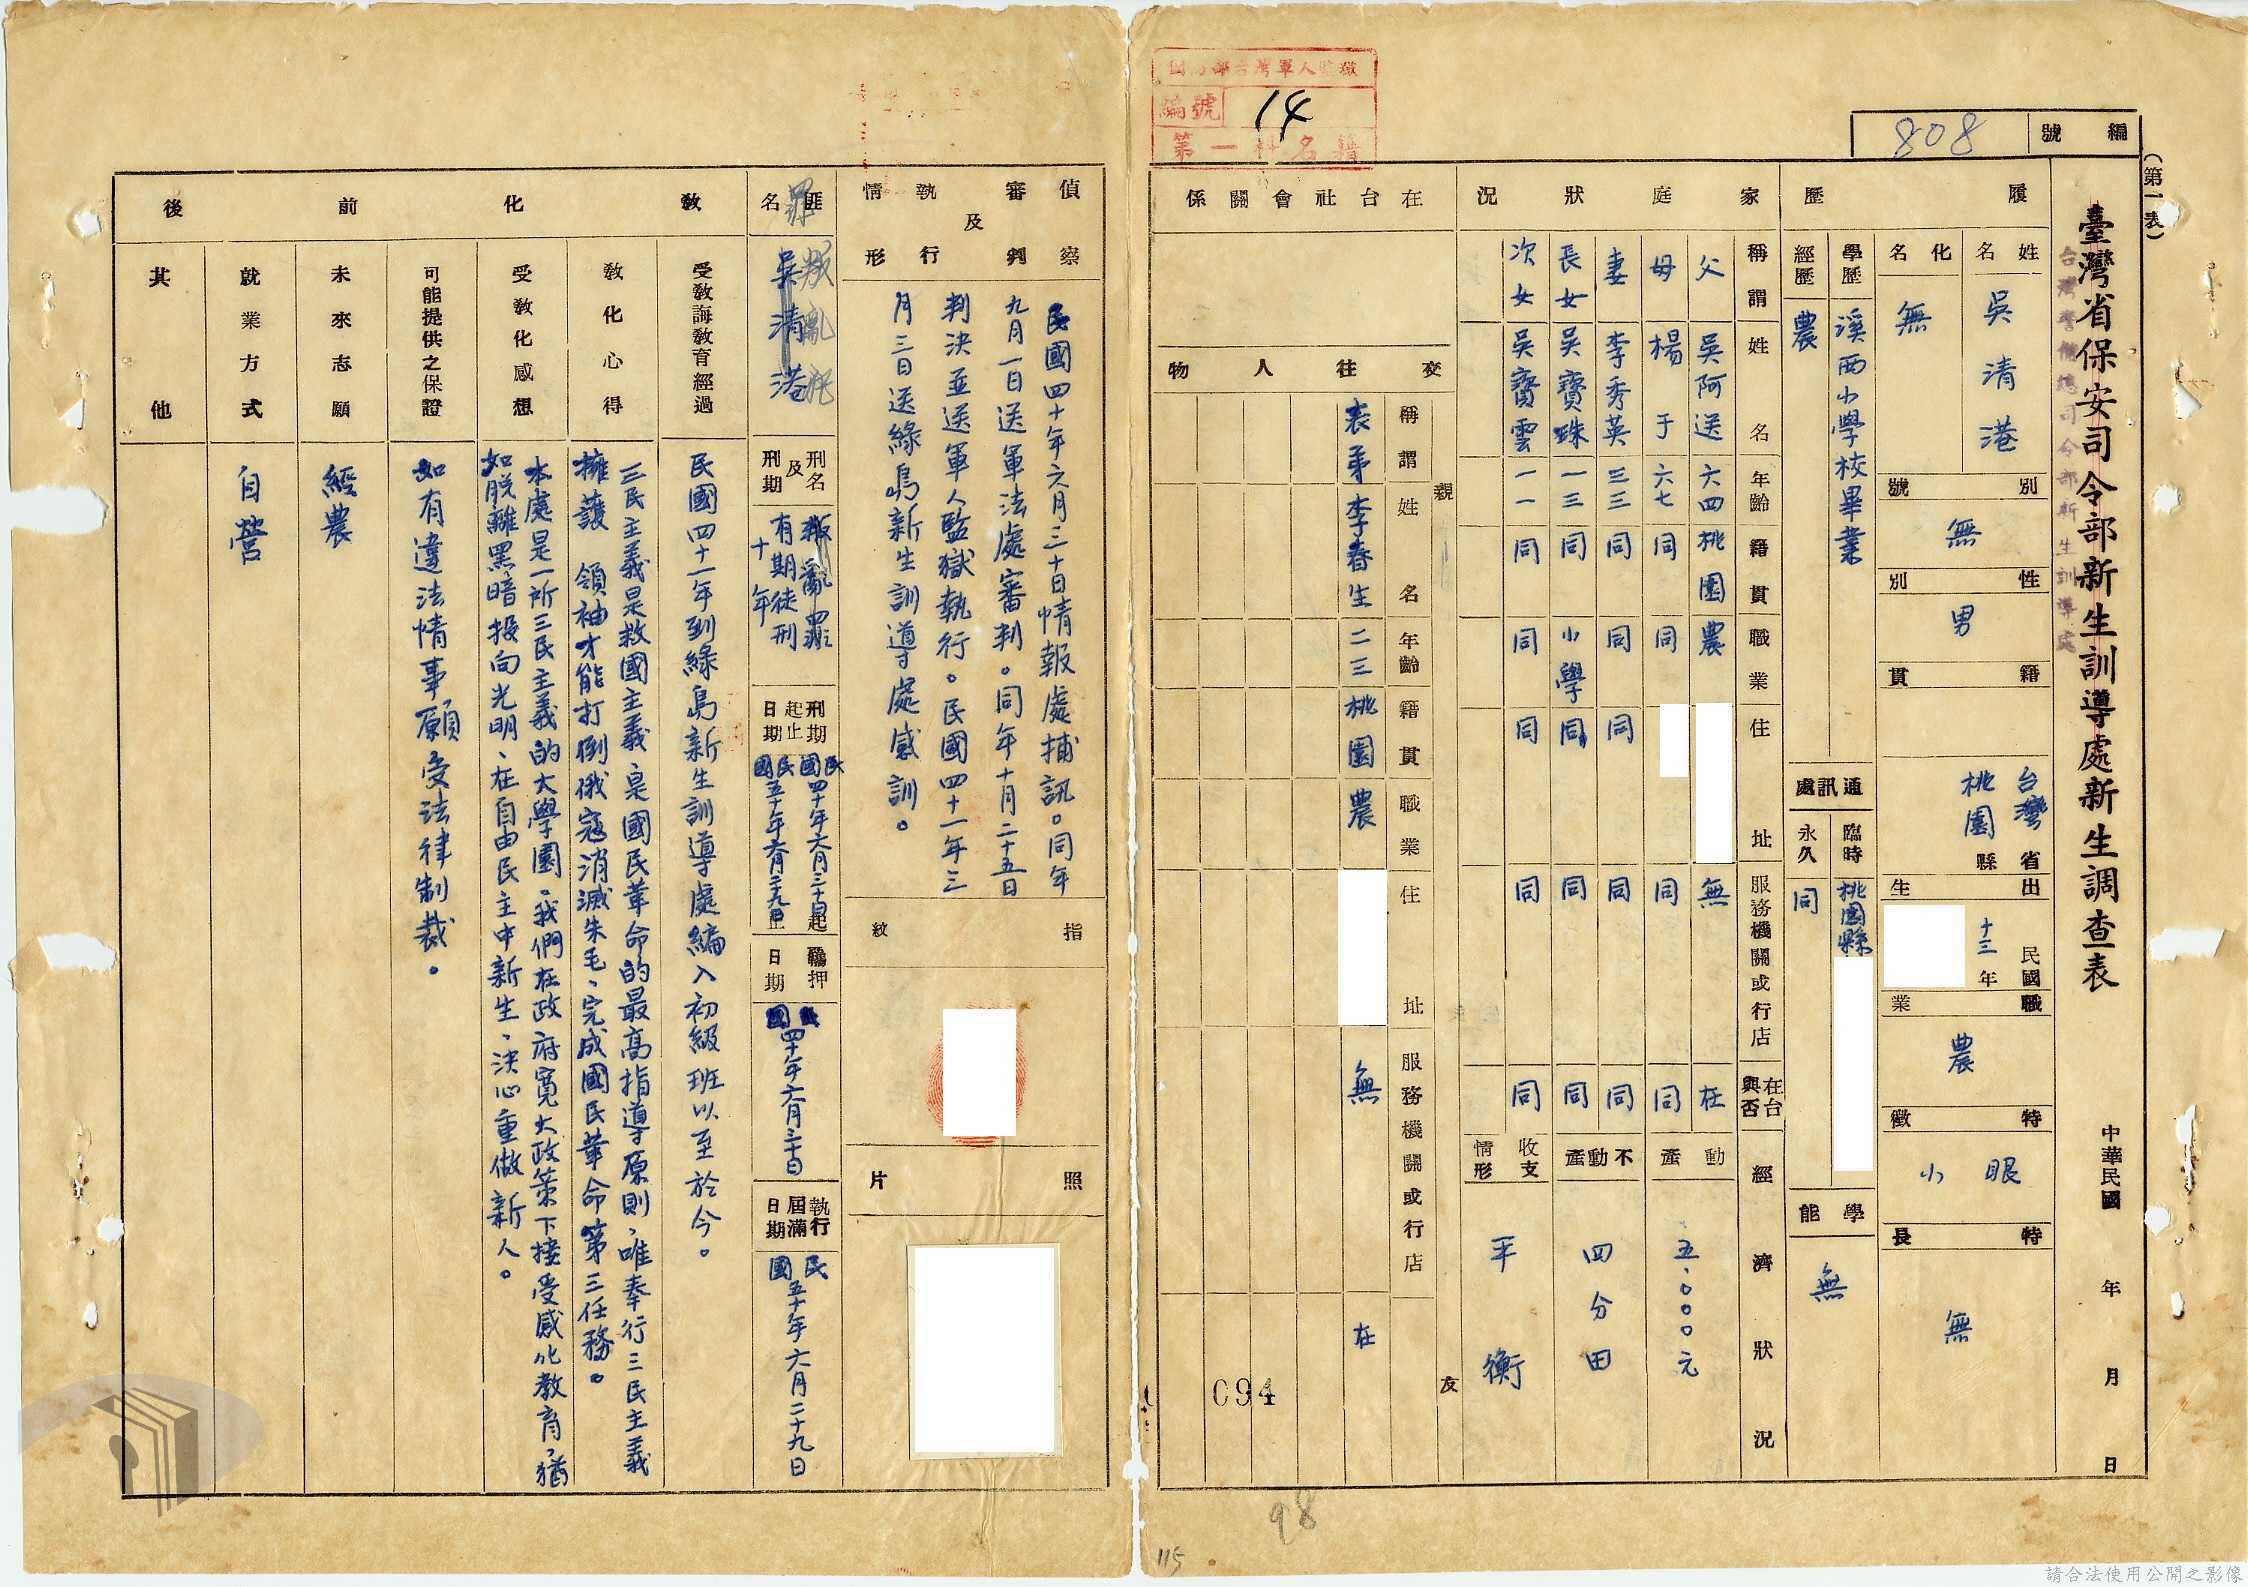 (第一表)
編號 808
國防部台灣軍人監獄
編號 14
第一科名籍
臺灣省保安司令部新生訓導處新生調查表
台灣警備總司令部新生訓導處
中華民國 年 月 日
履歷
姓名 吳清港
化名 無
別號 無
性別 男
籍貫 台灣省桃園縣
出生 民國十三年
職業 農
特徵 小眼
特長 無
學歷 溪西小學校畢業
經歷 農
通訊處
臨時 桃園縣
永久 同
學能 無
家庭狀況
稱謂 姓名 年齡 籍貫 職業 住址 服務機關或行店 在台與否 經濟狀況
父 吳阿送 六四 桃園 農 無 在
母 楊于 六七 同 同 同 同
妻 李秀英 三三 同 同 同 同 同
長女 吳寶珠 一三 同 小學 同 同 同
次女 吳寶雲 一一 同 同 同 同 同
動產 五.〇〇〇元
不動產 四分田
收支情形 平衡
在台社會關係
交往人物
親友
稱謂 姓名 年齡 籍貫 職業 住址 服務機關或行店
表弟 李春生 二三 桃園 農 無 在
094
98
115
偵察審判及執行情形
民國四十年六月三十日情報處捕訊。同年
九月一日送軍法處審判。同年十月二十五日
判決並送軍人監獄執行。民國四十一年三
月三日送綠島新生訓導處感訓。
指紋
照片
匪名 罪
吳清港
叛亂犯
刑名及刑期
叛亂罪
有期徒刑
十年
刑期起止日期
民國四十年六月三十日起
民國五十年六月二十九日止
羈押日期
民國四十年六月三十日
執行屆滿日期
民國五十年六月二十九日
教化前後
受教誨教育經過
民國四十一年到綠島新生訓導處編入初級班以至於今。
教化心得
三民主義是救國主義、是國民革命的最高指導原則、唯奉行三民主義
擁護 領袖才能打倒俄寇消滅朱毛、完成國民革命第三任務。
受教化感想
本處是一所三民主義的大學園。我們在政府寬大政策下接受感化教育、猶
如脫離黑暗投向光明、在自由民主中新生、決心重做新人。
可能提供之保證
如有違法情事願受法律制裁。
未來志願
經農
就業方式
自營
其他
請合法使用公開之影像